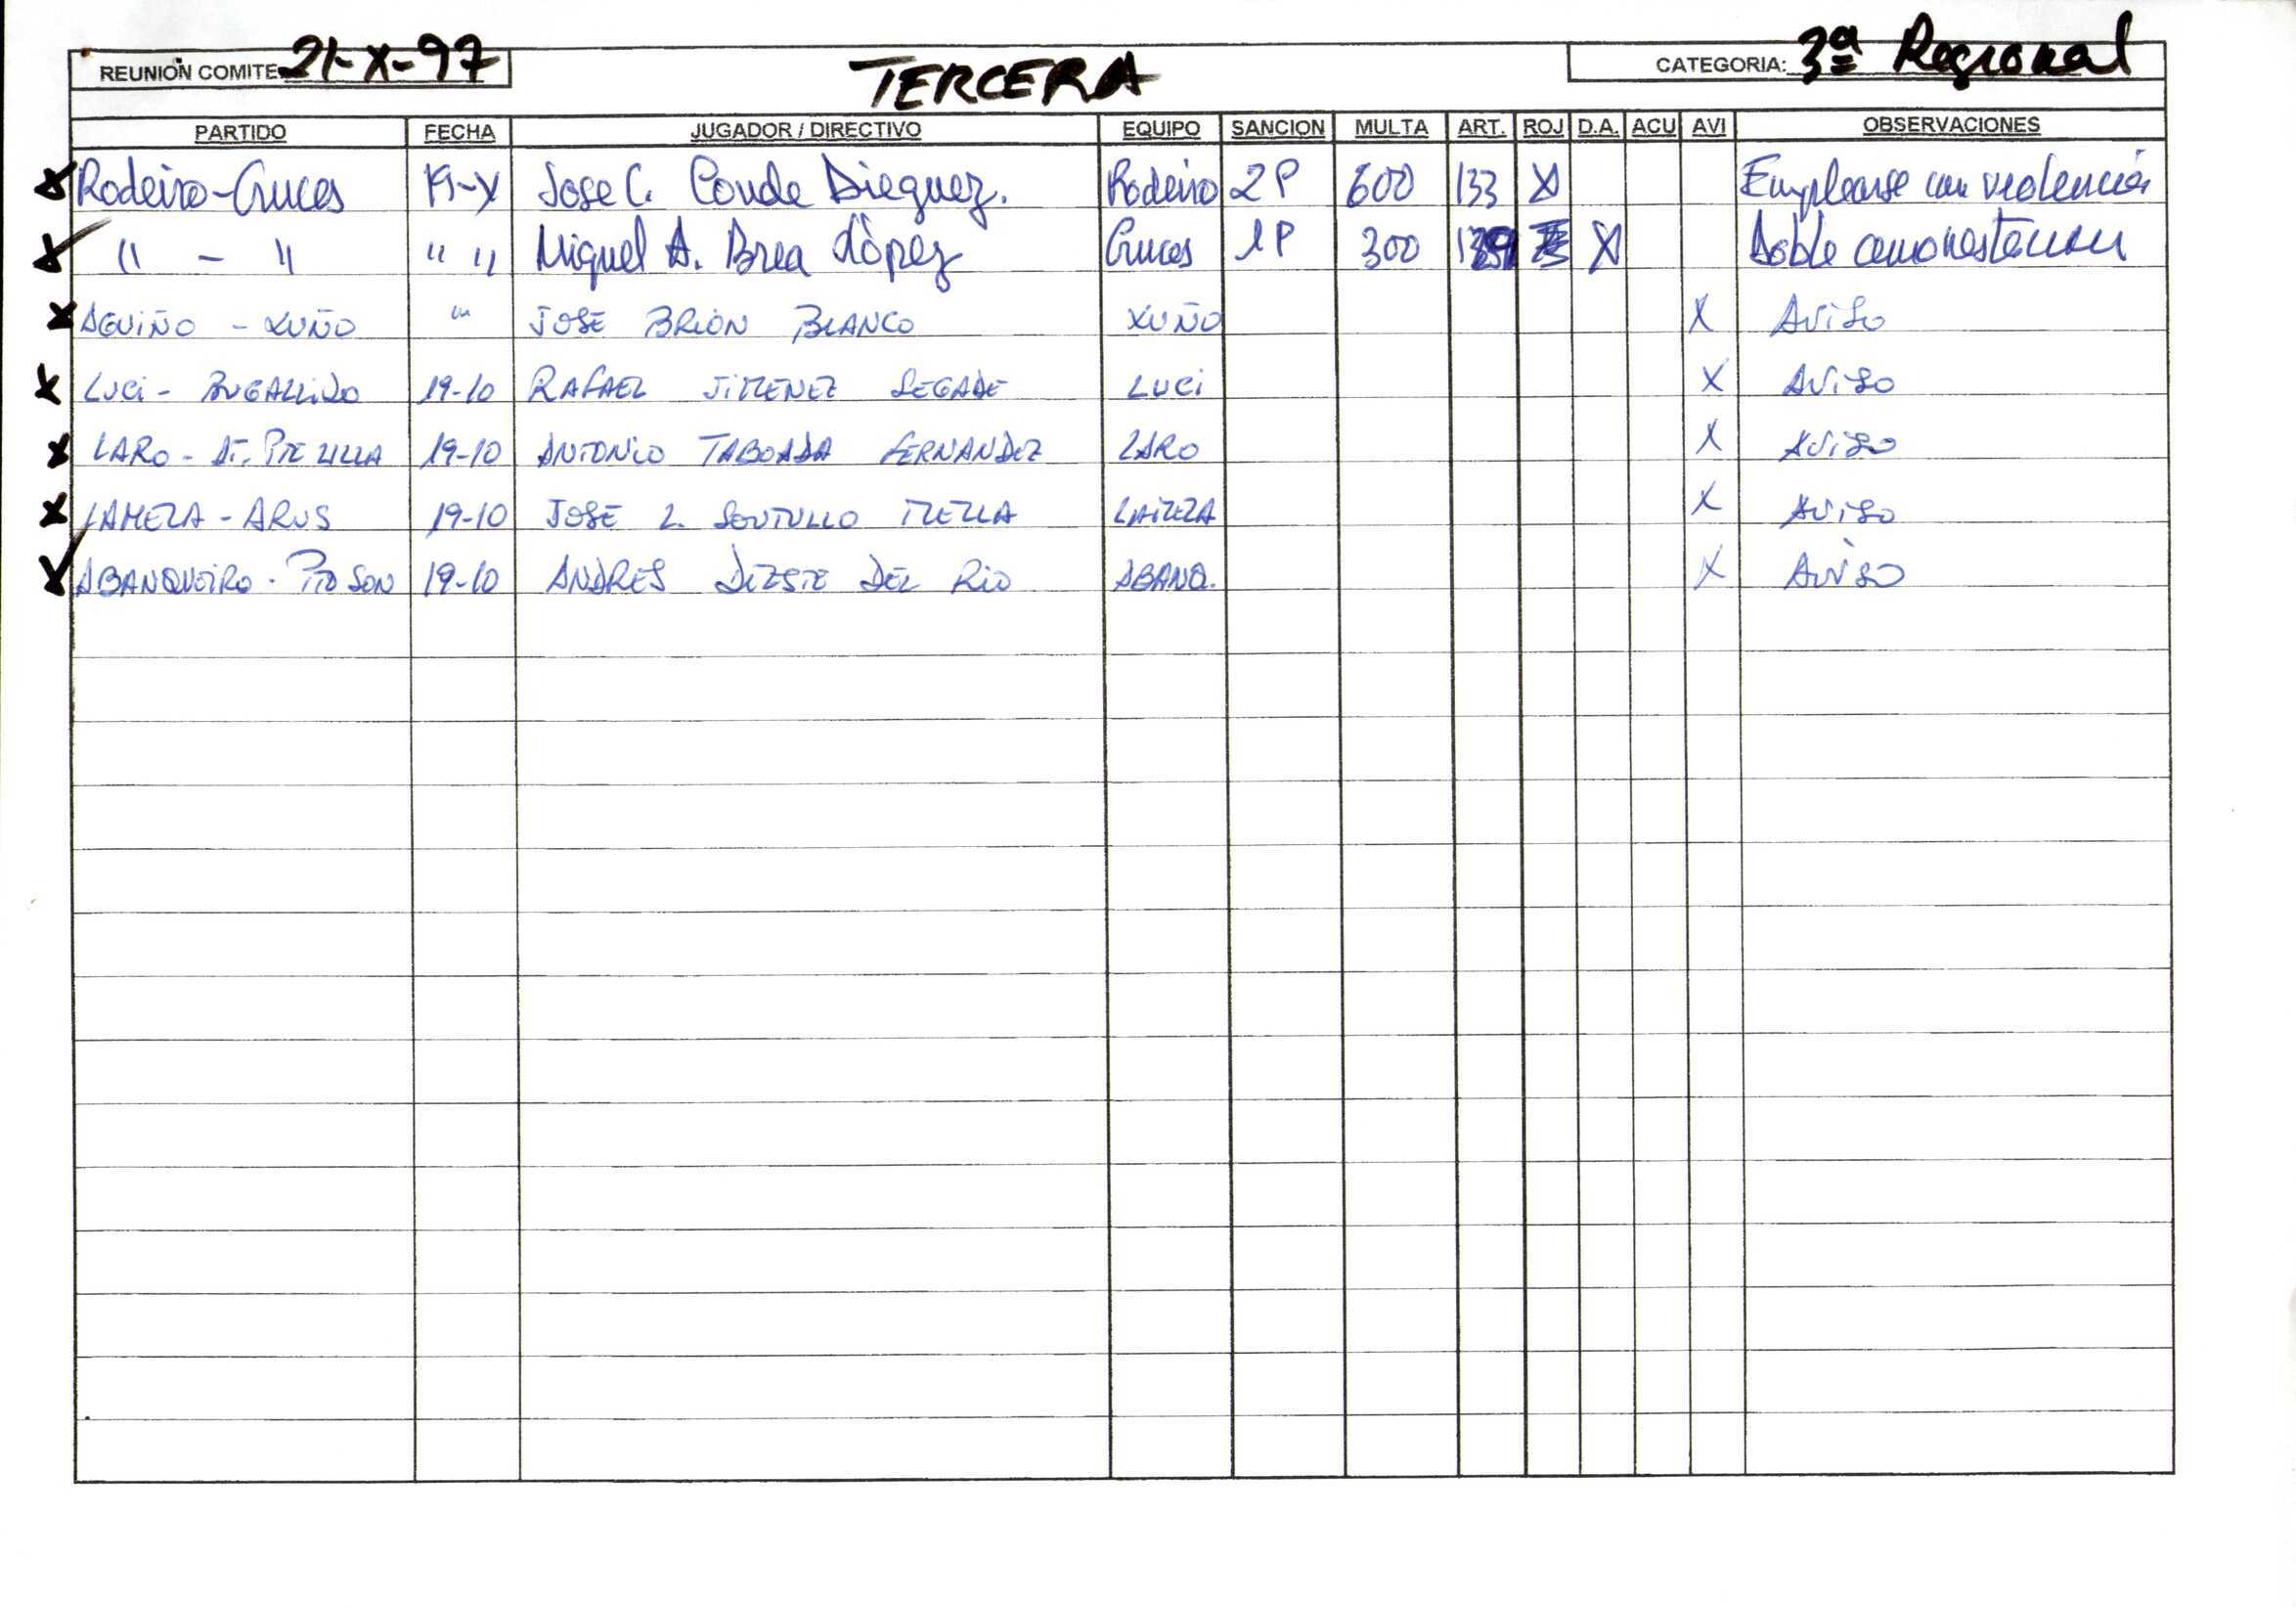 REUNIÓN COMITE 21-X-97 TERCERA CATEGORIA: 3ª Regional
PARTIDO FECHA JUGADOR / DIRECTIVO EQUIPO SANCION MULTA ART. ROJ D.A. ACU AVI OBSERVACIONES
X Rodeiro-Cruces 19-X Jose C. Conde Dieguez. Rodeiro 2P 600 133 X Emplearse con violencia
X " - " " " Miguel A. Brea López Cruces 1P 300 X Doble amonestación
X AGUIÑO - XUÑO " JOSE BRION BLANCO XUÑO X AVISO
X LUCI - BUGALLIDO 19-10 RAFAEL JIMENEZ SEGADE LUCI X AVISO
X LARO - AT. 19-10 ANTONIO TABOADA FERNANDEZ LARO X AVISO
X LAMELA - ARUS 19-10 JOSE L. SOUTULLO X AVISO
X ABANQUEIRO - PTO SON 19-10 ANDRES DIESTE DEL RIO ABANQ. X AVISO